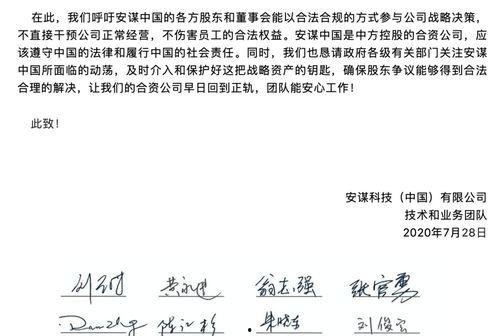 在此，我们呼吁安谋中国的各方股东和董事会能以合法合规的方式参与公司战略决策，
不直接干预公司正常经营，不伤害员工的合法权益。安谋中国是中方控股的合资公司，应
该遵守中国的法律和履行中国的社会责任。同时，我们也恳请政府各级有关部门关注安谋
中国所面临的动荡，及时介入和保护好这把战略资产的钥匙，确保股东争议能够得到合法
合理的解决，让我们的合资公司早日回到正轨，团队能安心工作！
此致！
安谋科技（中国）有限公司
技术和业务团队
2020年7月28日
翁志强 张官勇
朱晓东 刘俊宏